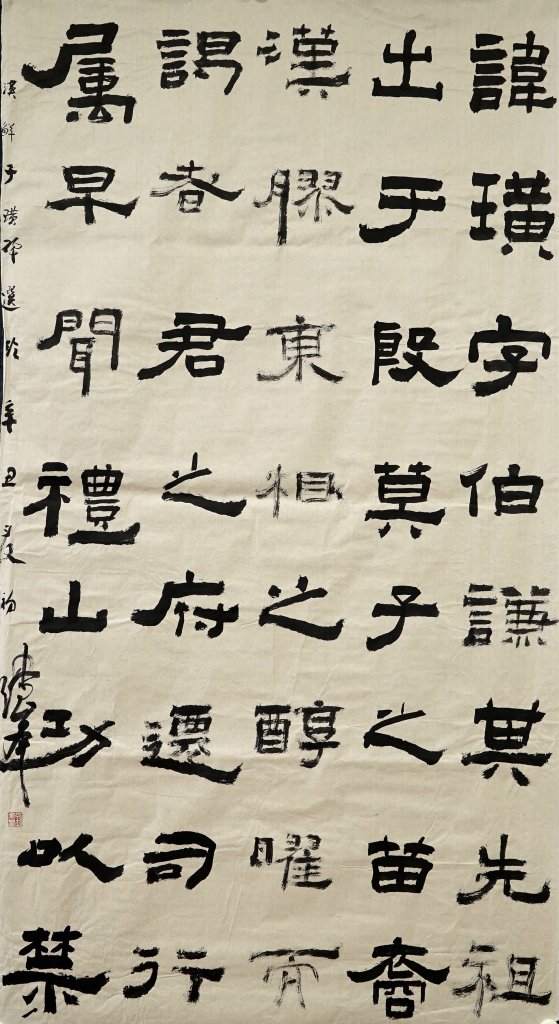 諱璜字伯謙其先祖
出于殷箕子之苗裔
漢膠東相之醇曜而
謁者君之府還司行
属早聞禮山功以禁
漢鮮于璜碑選臨辛丑夏初